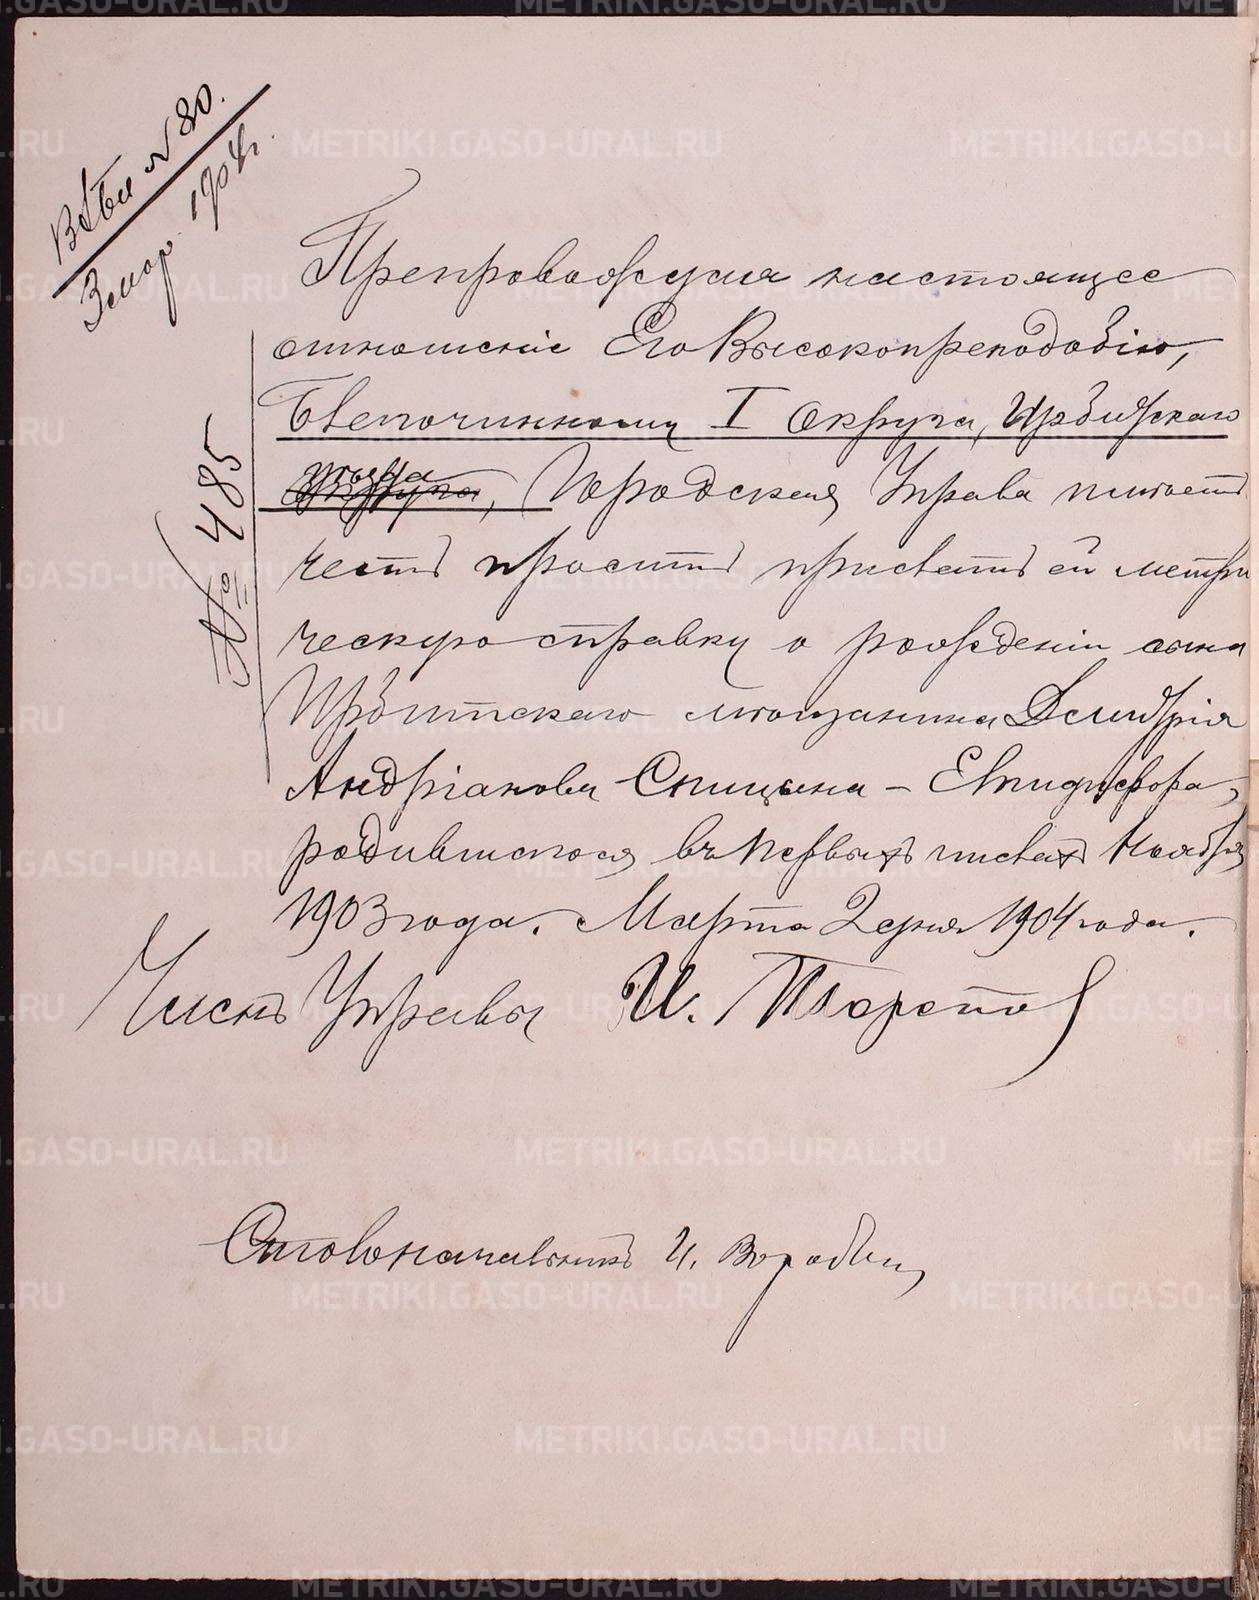 Вх. № 80.
3 мар. 1904 г.
№ 485
Препровождая настоящее
отношеніе Его Высокопреподобію,
Благочинному I Округа, Ирбитскаго
уѣзда, Городская Управа имѣетъ
честь просить прислать ей метри
ческую справку о рожденіи сына
Ирбитскаго мѣщанина Димитрія
Андріанова Спицына – Епидифора,
родившагося въ первыхъ числахъ Ноября
1903 года. Марта 2 дня 1904 года.
Членъ Управы И.
Столоначальникъ И.
METRIKI.GASO-URAL.RU